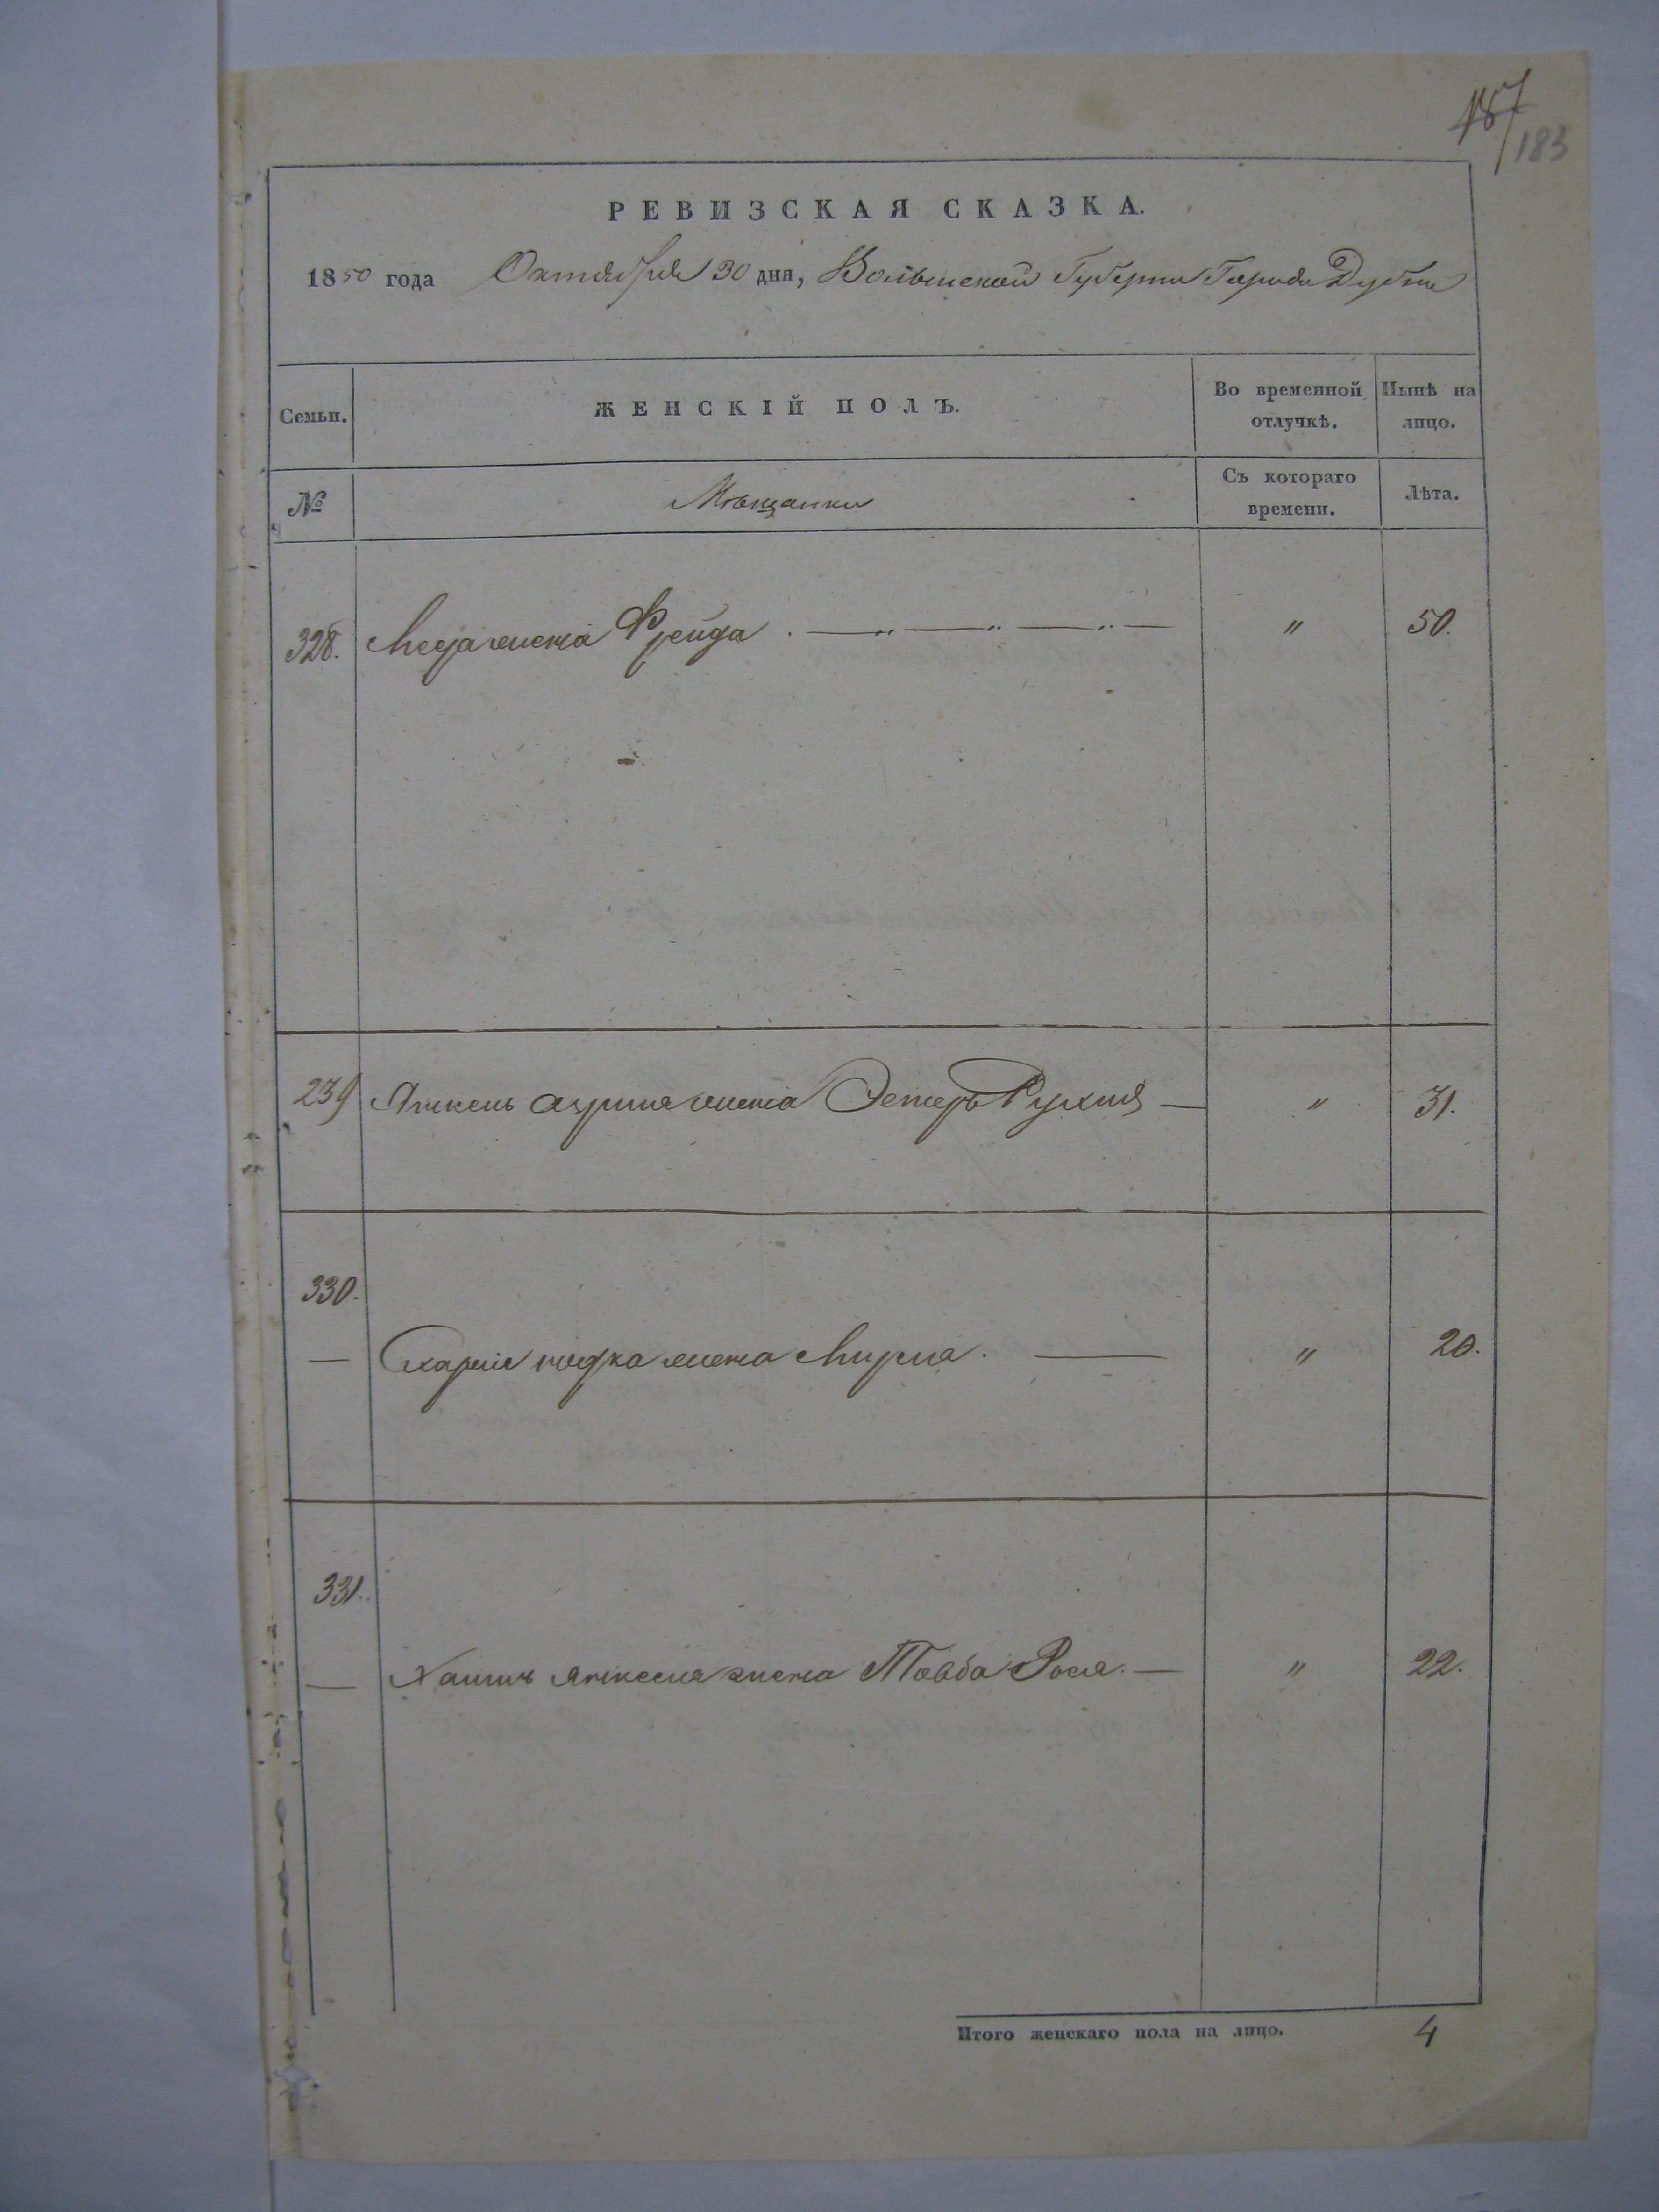 187
183
РЕВИЗСКАЯ СКАЗКА.
1850 года Октября 30 дня, Волынской Губернии Города Дубна
Семьи. ЖЕНСКІЙ ПОЛЪ. Во временной отлучкѣ. Нынѣ на лицо.
№ Мѣщанки Съ котораго времени. Лѣта.
328. жена Фрейда . — „ — „ — „ — „ 50.
239 жена Эстеръ Рухля — „ 31.
330.
— жена Мирля. — „ 20.
331.
— жена Товба Рося. — „ 22.
Итого женскаго пола на лицо. 4